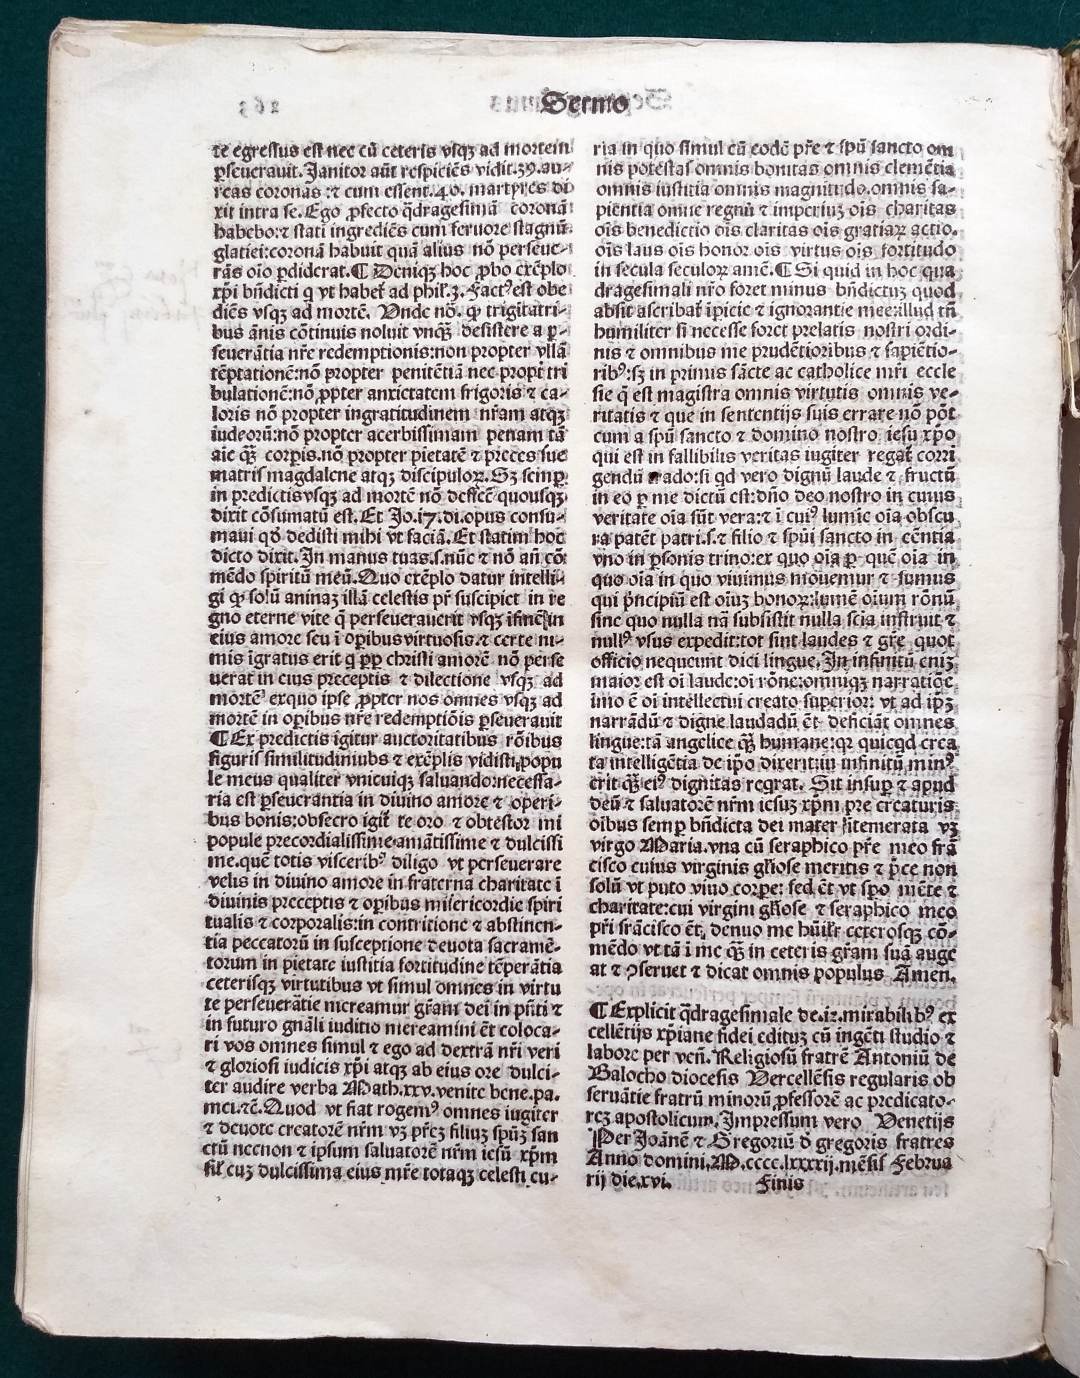 Sermo
te egressus est nec cū ceteris vsqꝫ ad mortem
ꝑseuerauit. Janitor aūt respiciēs vidit .39. au-
reas coronas ⁊ cum essent .40. martyres di
xit intra se. Ego ꝓfecto q̄dragesimā coronā
habebo: ⁊ stati ingrediēs cum feruore stagnū
glatiei: coronā habuit quā alius nō perseue-
rās oīo ꝑdiderat. ¶ Deniqꝫ hoc ꝓbo exēplo
xp̄i bn̄dicti q vt habet̄ ad phil'.3. Factꝰ est obe
diēs vsqꝫ ad mortē. Vnde nō. ꝙ trigītatri-
bus ānis cōtinuis noluit vnqꝫ̄ desistere a ꝑ-
seuerātia nr̄e redemptionis: non propter vllā
tēptationē: nō propter penitētiā nec propt̄ tri
bulationē: nō ꝓpter anxietatem frigoris ⁊ ca-
loris nō propter ingratitudinem nr̄am atqꝫ
iudeorū: nō propter acerbissimam penam tā
aīe qꝫ̄ corꝑis. nō propter pietatē ⁊ preces sue
matris magdalene atqꝫ discipuloꝝ. Sꝫ semꝑ
in predictis vsqꝫ ad mortē nō deffec̄ quousqꝫ
dixit cōsumatū est. Et Jo.17. di. opus consu-
maui qd̄ dedisti mihi vt faciā. Et statim hoc
dicto dixit. In manus tuas .s. nūc ⁊ nō an̄ cō
mēdo spiritū meū. Quo exēplo datur intelli-
gi ꝙ solū animaꝫ illā celestis pr̄ suscipiet in re
gno eterne vite q̄ perseuerauerit vsqꝫ ī finē in
eius amore seu ī oꝑibus virtuosis. ⁊ certe ni-
mis īgratus erit q ꝓp̄ christi amorē nō perse
uerat in eius preceptis ⁊ dilectione vsqꝫ ad
mortē exquo ipse ꝓpter nos omnes vsqꝫ ad
mortē in oꝑibus nr̄e redemptiōis ꝑseuerauit
¶ Ex predictis igitur auctoritatibus rōibus
figuris similitudiniubs ⁊ exēplis vidisti popu
le meus qualiter vnicuiqꝫ saluando: necessa-
ria est ꝑseuerantia in diuino amore ⁊ operi-
bus bonis: obsecro igit̄ te oro ⁊ obtestor mi
popule precordialissime amātissime ⁊ dulcissi
me. quē totis visceribꝰ diligo vt perseuerare
velis in diuino amore in fraterna charitate ī
diuinis preceptis ⁊ oꝑibus misericordie spiri
tualis ⁊ corporalis: in contritione ⁊ abstinen-
tia peccatorū in susceptione deuota sacramē-
torum in pietate iustitia fortitudine tēperātia
ceterisqꝫ virtutibus vt simul omnes in virtu
te perseuerātie mereamur gr̄am dei in pn̄ti ⁊
in futuro gn̄ali iuditio mereamini ēt coloca-
ri vos omnes simul ⁊ ego ad dextrā nr̄i veri
⁊ gloriosi iudicis xp̄i atqꝫ ab eius ore dulci-
ter audire verba Math. xxv. venite bene. pa.
mei. ⁊c̄. Quod vt fiat rogemꝰ omnes iugiter
⁊ deuote creatorē nr̄m vꝫ pr̄eꝫ filiuꝫ spūꝫ san
ctū necnon ⁊ ipsum saluatorē nr̄m iesū xp̄m
sil̄ cuꝫ dulcissima eius mr̄e totaqꝫ celesti cu-
ria in quo simul cū eodē pr̄e ⁊ spū sancto om
nis potestas omnis bonitas omnis clemētia
omnis iustitia omnis magnitudo. omnis sa-
pientia omne regnū ⁊ imperiuꝫ oīs charitas
oīs benedictio oīs claritas oīs gratiaꝝ actio.
oīs laus oīs honor oīs virtus oīs fortitudo
in secula seculoꝝ amē. ¶ Si quid in hoc qua
dragesimali nr̄o foret minus bn̄dictuꝫ quod
absit ascribat̄ īꝑicie ⁊ ignorantie mee: illud tn̄
humiliter si necesse foret prelatis nostri ordi-
nis ⁊ omnibus me prudētioribus ⁊ sapiētio-
ribꝰ: sꝫ in primis sācte ac catholice mr̄i eccle
sie q̄ est magistra omnis virtutis omnis ve-
ritatis ⁊ que in sententijs suis errare nō pōt
cum a spū sancto ⁊ domino nostro iesu xp̄o
qui est in fallibilis veritas iugiter regat̄ corri
gendū trado: si qd vero dignū laude ⁊ fructū
in eo ꝑ me dictū est: dn̄o deo nostro in cuius
veritate oīa sūt vera: ⁊ ī cuiꝰ lumīe oīa obscu
ra patēt patri .s. ⁊ filio ⁊ spūi sancto in cēntia
vno in ꝑsonis trino: ex quo oīa ꝑ quē oīa in
quo oīa in quo viuimus mouemur ⁊ sumus
qui pncipiū est oīuꝫ honoꝝ: lumē oīum rōnū
sine quo nulla nā subsistit nulla scīa instruit ⁊
nullꝰ vsus expedit: tot sint laudes ⁊ gr̄e quot
officio nequeunt dici lingue. In infinitū eniꝫ
maior est oī laude: oī rōne: omniqꝫ narratiōe
īmo ē oī intellectui creato superior: vt ad ip̄ꝫ
narrādū ⁊ digne laudādū ēt deficiāt omnes
lingue: tā angelice qꝫ̄ humane: qꝛ quicqd crea
ta intelligētia de ip̄o dixerit: iu infinitū minꝰ
erit qꝫ̄ eiꝰ dignitas reqrat. Sit insuꝑ ⁊ apud
deū ⁊ saluatorē nr̄m iesuꝫ xp̄m pre creaturis
oībus semꝑ bn̄dicta dei mater ītemerata vꝫ
virgo Maria. vna cū seraphico pr̄e meo frā
cisco cuius virginis gl̄iose meritis ⁊ p̄ce non
solū vt puto viuo corpe: sed ēt vt spo mēte ⁊
charitate: cui virgini gl̄iose ⁊ seraphico meo
pr̄i frācisco ēt denuo me hūil̄r ceterosqꝫ cō-
mēdo vt tā ī me qꝫ̄ in ceteris gr̄am suā auge
at ⁊ ꝯseruet ⁊ dicat omnis populus Amen.
¶ Explicit q̄dragesimale de .12. mirabilibꝰ ex
cellētijs xp̄iane fidei edituꝫ cū ingēti studio ⁊
labore per ven̄. Religiosū fratrē Antoniū de
Balocho diocesis Vercellēsis regularis ob
seruātie fratrū minorū ꝓfessorē ac predicato-
reꝫ apostolicum. Impressum vero Venetijs
Per Joānē ⁊ Gregoriū d̄ gregoris fratres
Anno domini. M.cccc.lxxxxij. mēsis Februa
rij die. xvi. Finis